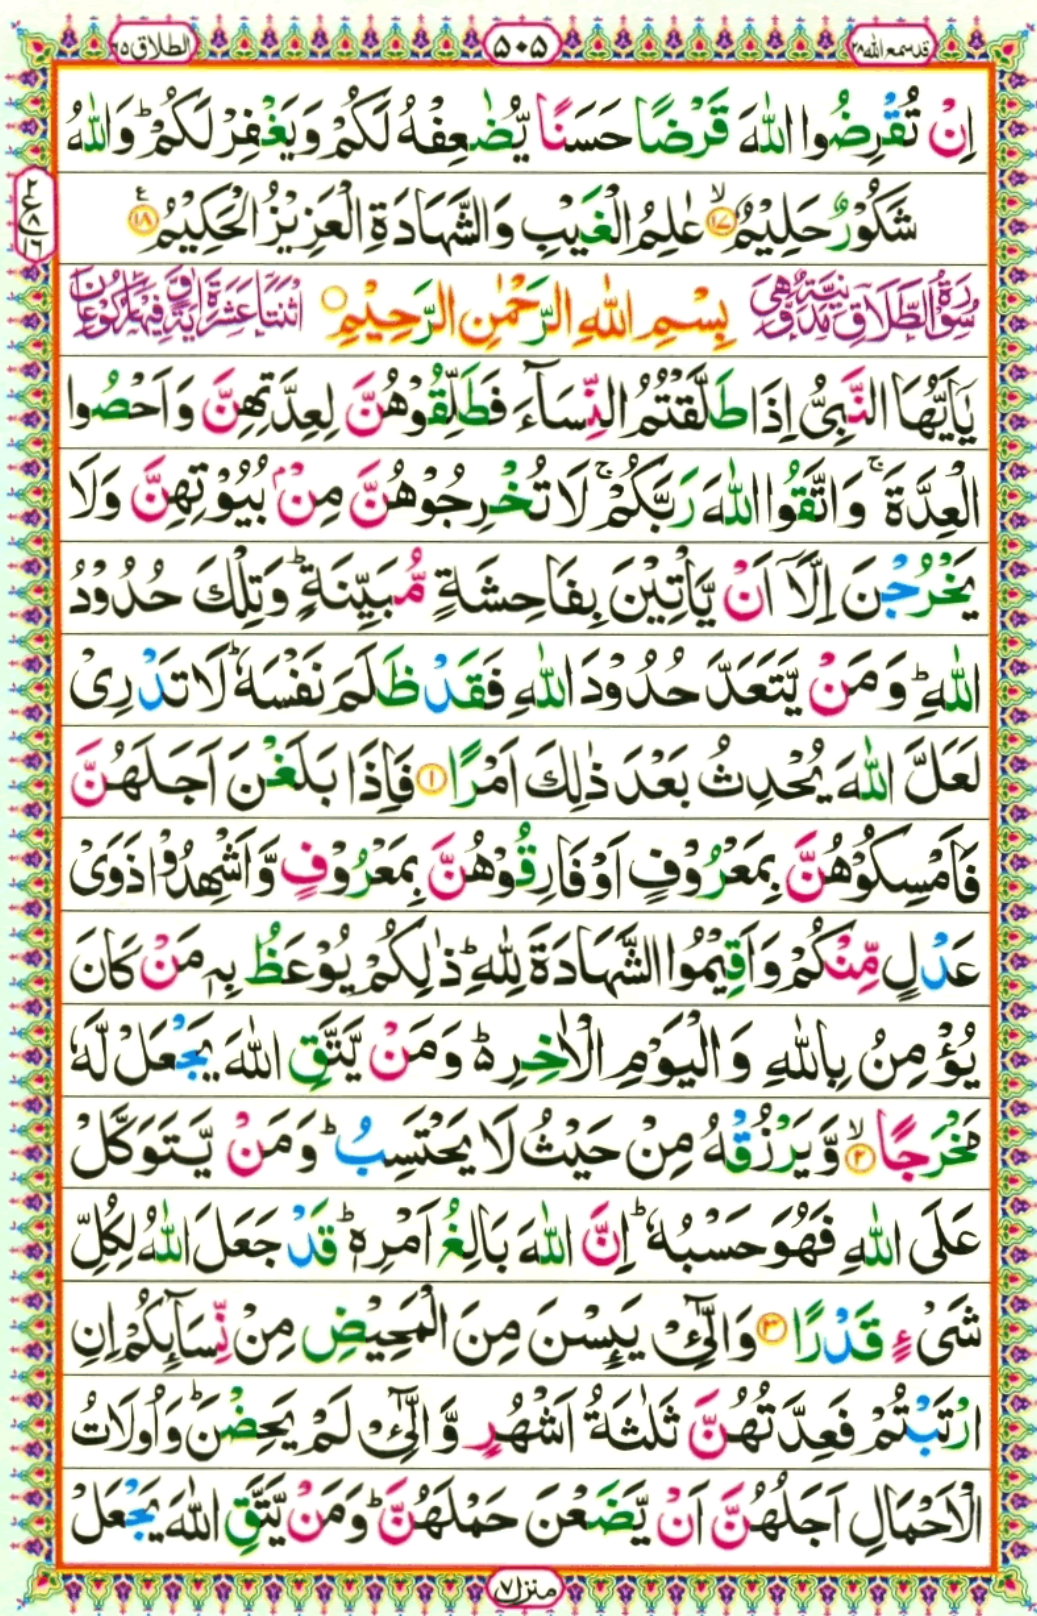 قدسمع الله ۲۸ ۵۰۵ الطلاق ۶۵
اِنْ تُقْرِضُوا اللّٰهَ قَرْضًا حَسَنًا يُّضٰعِفْهُ لَكُمْ وَيَغْفِرْ لَكُمْ ؕ وَاللّٰهُ
شَكُوْرٌ حَلِيْمٌ ۙ﴿۱۷﴾ عٰلِمُ الْغَيْبِ وَالشَّهَادَةِ الْعَزِيْزُ الْحَكِيْمُ ﴿۱۸﴾ ع
۲ ع ۸ ۱۶
سُوْرَةُ الطَّلَاقِ مَدَنِيَّةٌ وَّهِيَ بِسْمِ اللّٰهِ الرَّحْمٰنِ الرَّحِيْمِ اثْنَتَا عَشْرَةَ اٰيَةً وَّفِيْهَا رُكُوْعَانِ
يٰۤاَيُّهَا النَّبِىُّ اِذَا طَلَّقْتُمُ النِّسَآءَ فَطَلِّقُوْهُنَّ لِعِدَّتِهِنَّ وَاَحْصُوا
الْعِدَّةَ ۚ وَاتَّقُوا اللّٰهَ رَبَّكُمْ ۚ لَا تُخْرِجُوْهُنَّ مِنْۢ بُيُوْتِهِنَّ وَلَا
يَخْرُجْنَ اِلَّاۤ اَنْ يَّاْتِيْنَ بِفَاحِشَةٍ مُّبَيِّنَةٍ ؕ وَتِلْكَ حُدُوْدُ
اللّٰهِ ؕ وَمَنْ يَّتَعَدَّ حُدُوْدَ اللّٰهِ فَقَدْ ظَلَمَ نَفْسَهٗ ؕ لَا تَدْرِىْ
لَعَلَّ اللّٰهَ يُحْدِثُ بَعْدَ ذٰلِكَ اَمْرًا ﴿۱﴾ فَاِذَا بَلَغْنَ اَجَلَهُنَّ
فَاَمْسِكُوْهُنَّ بِمَعْرُوْفٍ اَوْ فَارِقُوْهُنَّ بِمَعْرُوْفٍ وَّاَشْهِدُوْا ذَوَىْ
عَدْلٍ مِّنْكُمْ وَاَقِيْمُوا الشَّهَادَةَ لِلّٰهِ ؕ ذٰلِكُمْ يُوْعَظُ بِهٖ مَنْ كَانَ
يُؤْمِنُ بِاللّٰهِ وَالْيَوْمِ الْاٰخِرِ ؕ۬ وَمَنْ يَّتَّقِ اللّٰهَ يَجْعَلْ لَّهٗ
مَخْرَجًا ۙ﴿۲﴾ وَّيَرْزُقْهُ مِنْ حَيْثُ لَا يَحْتَسِبُ ؕ وَمَنْ يَّتَوَكَّلْ
عَلَى اللّٰهِ فَهُوَ حَسْبُهٗ ؕ اِنَّ اللّٰهَ بَالِغُ اَمْرِهٖ ؕ قَدْ جَعَلَ اللّٰهُ لِكُلِّ
شَىْءٍ قَدْرًا ﴿۳﴾ وَالّٰٓئِْ يَئِسْنَ مِنَ الْمَحِيْضِ مِنْ نِّسَآئِكُمْ اِنِ
ارْتَبْتُمْ فَعِدَّتُهُنَّ ثَلٰثَةُ اَشْهُرٍ وَّالّٰٓئِْ لَمْ يَحِضْنَ ؕ وَاُولَاتُ
الْاَحْمَالِ اَجَلُهُنَّ اَنْ يَّضَعْنَ حَمْلَهُنَّ ؕ وَمَنْ يَّتَّقِ اللّٰهَ يَجْعَلْ
منزل ۷